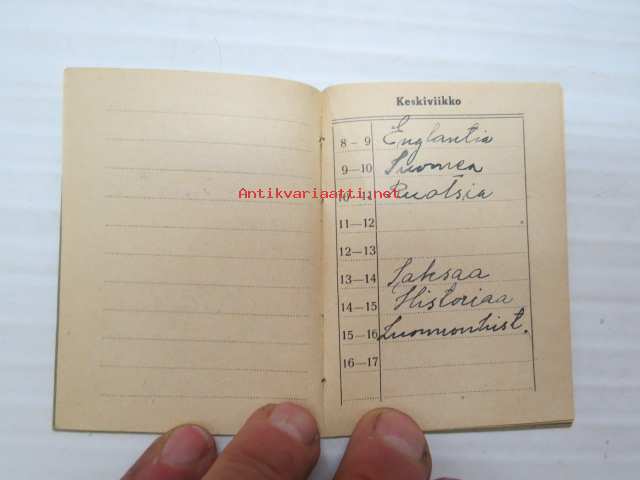 Keskiviikko
8-9 Englantia
9-10 Suomea
Antikvariaatti.net
10-11 Ruotsia
11-12
12-13
13-14 Saksaa
14-15 Historiaa
15-16 Luonnonhist.
16-17